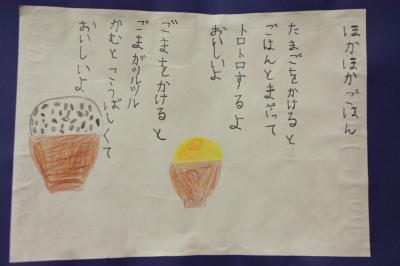 ほかほかごはん
たまごをかけると
ごはんとまざって
トロトロするよ
おいしいよ
ごまをかけると
ごまがツルツル
かむとこうばしくて
おいしいよ